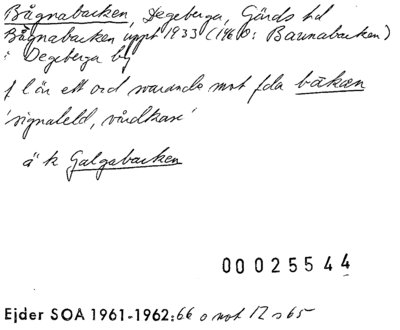 Bågnabacken, Degeberga, Gärds hd
Bågnabacken uppt 1933 (1960: Baunabacken)
i Degeberga by
f l än ett ord svarande mot fda båkæn
'signaleld, vårdkase'
ä k Galgabacken
00025544
Ejder SOA 1961-1962:66 o not 12 s 65